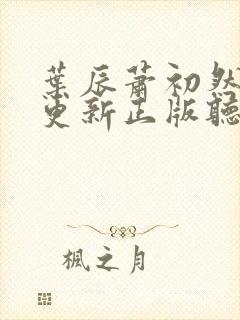 葉辰蕭初然
更新正版聽
楓之月